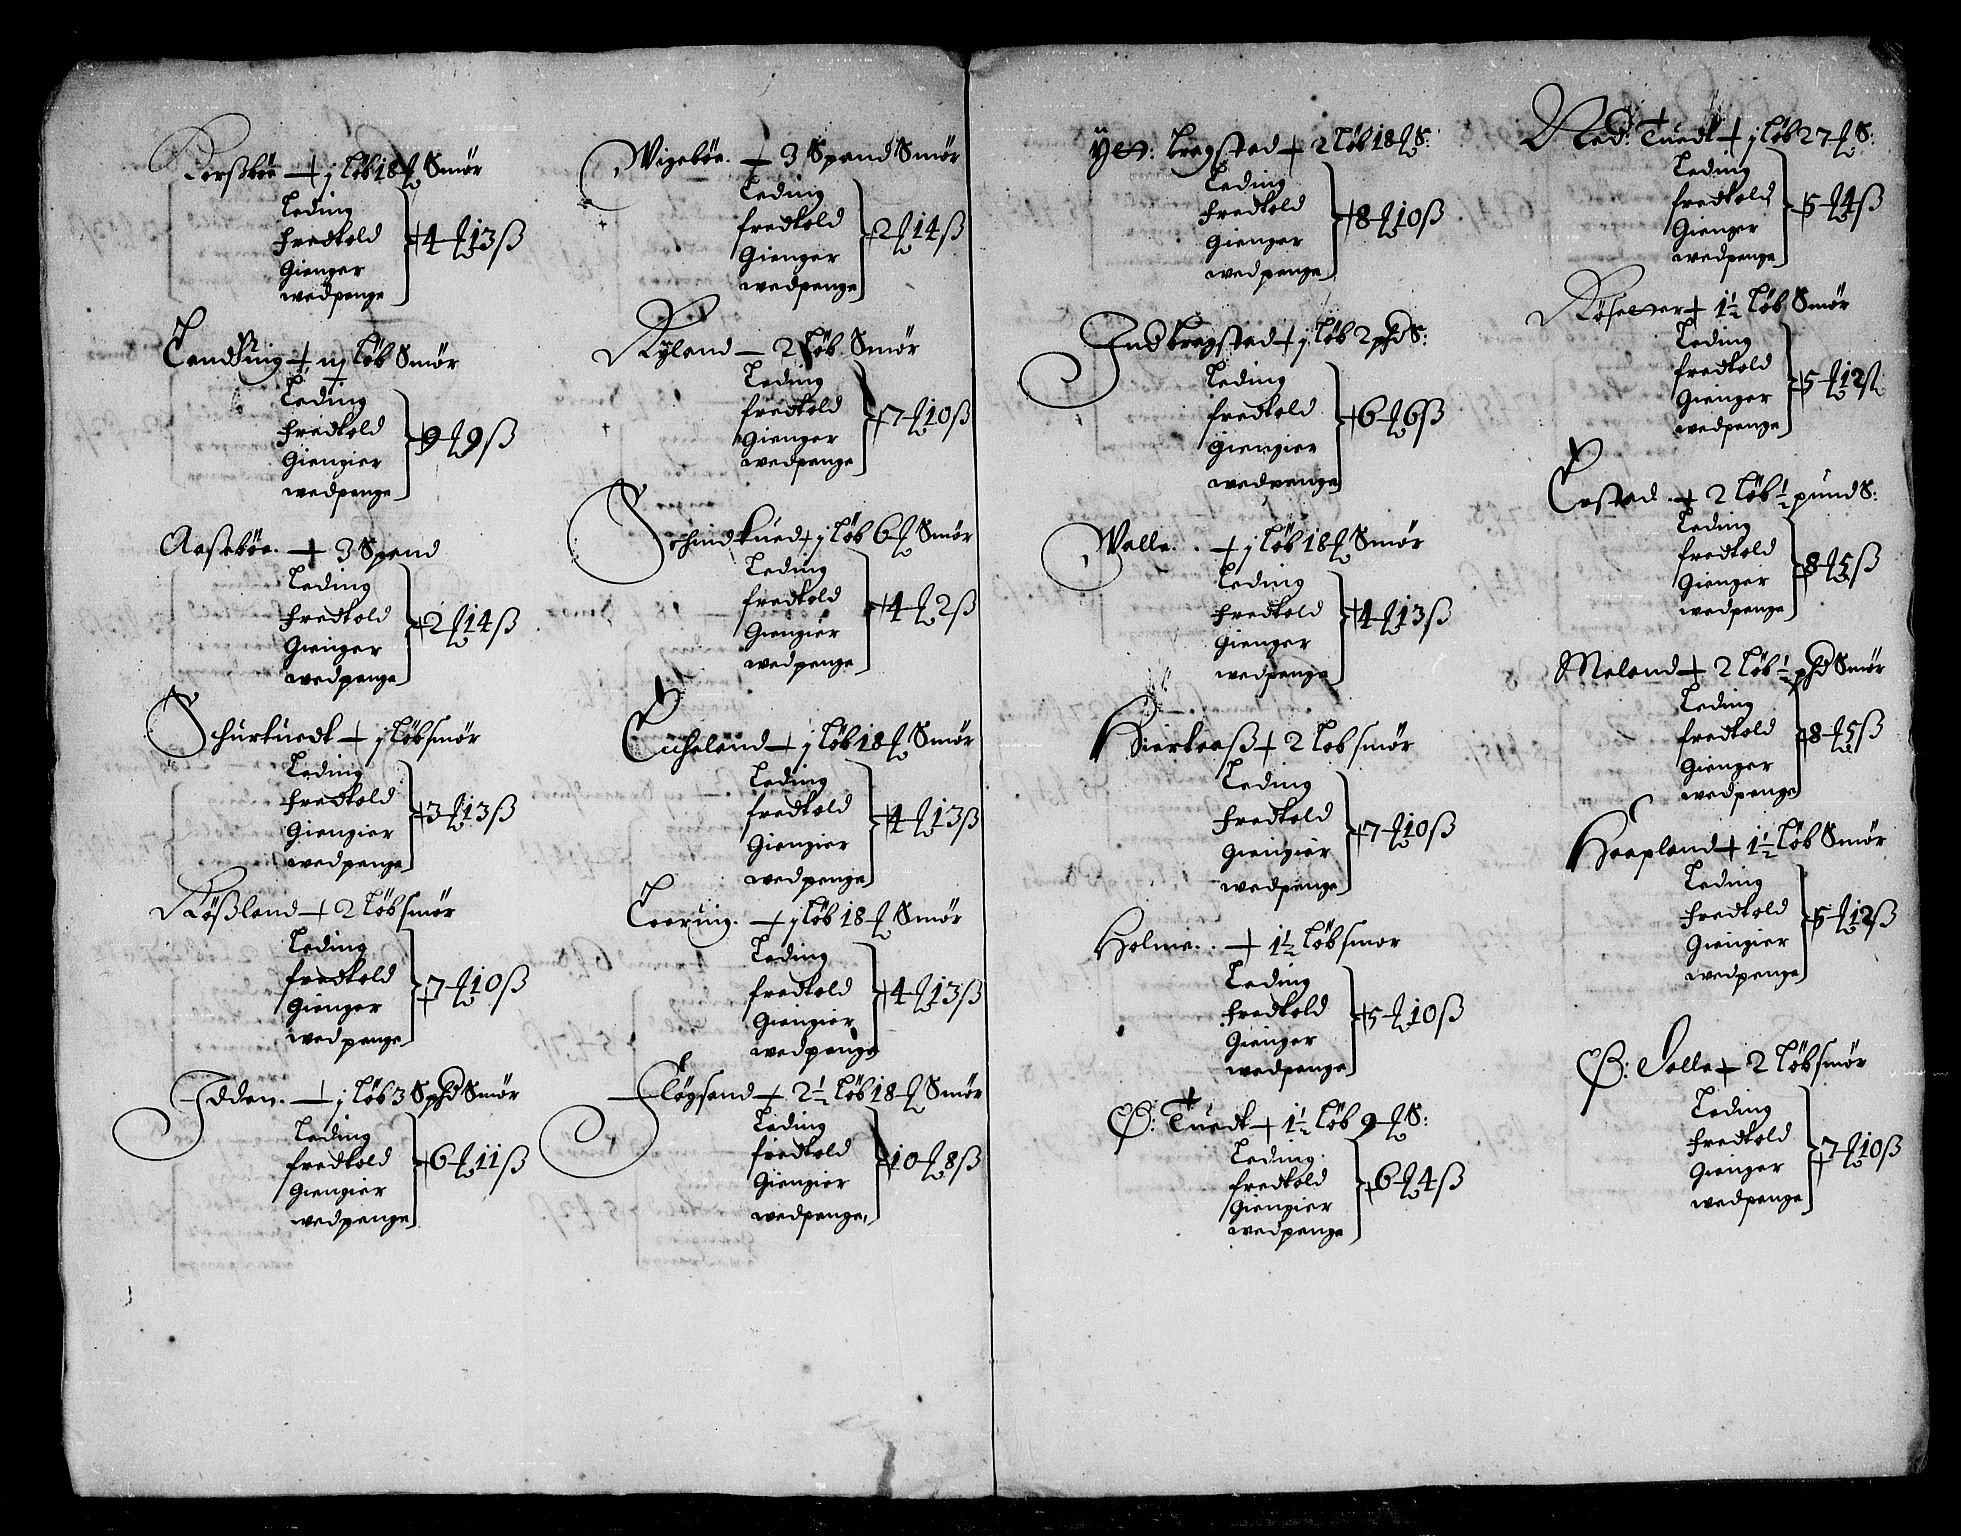 Kersbøe — j løb 18 ℔ Smör
Leding
fredtold
Gienger
wedpenge
4 ℔ 13 ß
Tandting — løb Smör
Leding
fredtold
Giengier
wedpenge
9 ℔ 9 ß
Aasebøe. — 3 Spand
Leding
fredtold
Gienger
wedpenge
2 ℔ 14 ß
Schurtuedt — j löb smör
Leding
fredtold
Giengier
wedpenge
3 ℔ 13 ß
Rößland — 2 löb smör
Leding
fredtold
Gienger
wedpenge
7 ℔ 10 ß
Iddan. — j löb 3 Sphd Smör
Leding
fredtold
Giengier
wedpenge
6 ℔ 11 ß
Vigebøe. — 3 Spand Smör
Leding
fredtold
Gienger
wedpenge
2 ℔ 14 ß
Ryland — 2 löb Smör
Leding
fredtold
Gienger
wedpenge
7 ℔ 10 ß
Schindtued — j löb 6 ℔ Smör
Leding
fredtold
Giengier
wedpenge
4 ℔ 2 ß
Eicheland — j löb 18 ℔ Smör
Leding
fredtold
Giengier
wedpenge
4 ℔ 13 ß
— j löb 18 ℔ Smör
Leding
fredtold
Giengier
wedpenge
4 ℔ 13 ß
Fløgsand — 2½ löb 18 ℔ Smör
Leding
fredtold
Giengier
wedpenge
10 ℔ 8 ß
Ytt: bragstad — 2 löb 18 ℔ S:
Leding
fredtold
Gienger
wedpenge
8 ℔ 10 ß
Indbragstad — j löb 2 phd S:
Leding
fredtold
Giengier
wedpenge
6 ℔ 6 ß
Valle. — j löb 18 ℔ Smör
Leding
fredtold
Gienger
wedpenge
4 ℔ 13 ß
Hiertaaß — 2 löb smör
Leding
fredtold
Giengier
wedpenge
7 ℔ 10 ß
Holme. — 1½ löb smör
Leding
fredtold
Gienger
wedpenge
5 ℔ 10 ß
Ø: Tuedt — 1½ löb 9 ℔ S:
Leding
fredtold
Giengier
wedpenge
6 ℔ 4 ß
Ned: Tuedt — j löb 27 ℔ S:
Leding
fredtold
Gienger
wedpenge
5 ℔ 4 ß
— 1½ löb Smör
Leding
fredtold
Gienger
wedpenge
5 ℔ 12 ß
Erstad — 2 löb ½ pund S:
Leding
fredtold
Gienger
wedpenge
8 ℔ 5 ß
Meland — 2 löb ½ phd Smör
Leding
fredtold
Gienger
wedpenge
8 ℔ 5 ß
Haapland — 1½ löb Smör
Leding
fredtold
Giengier
wedpenge
5 ℔ 12 ß
Ø: — 2 löb smör
Leding
fredtold
Gienger
wedpenge
7 ℔ 10 ß